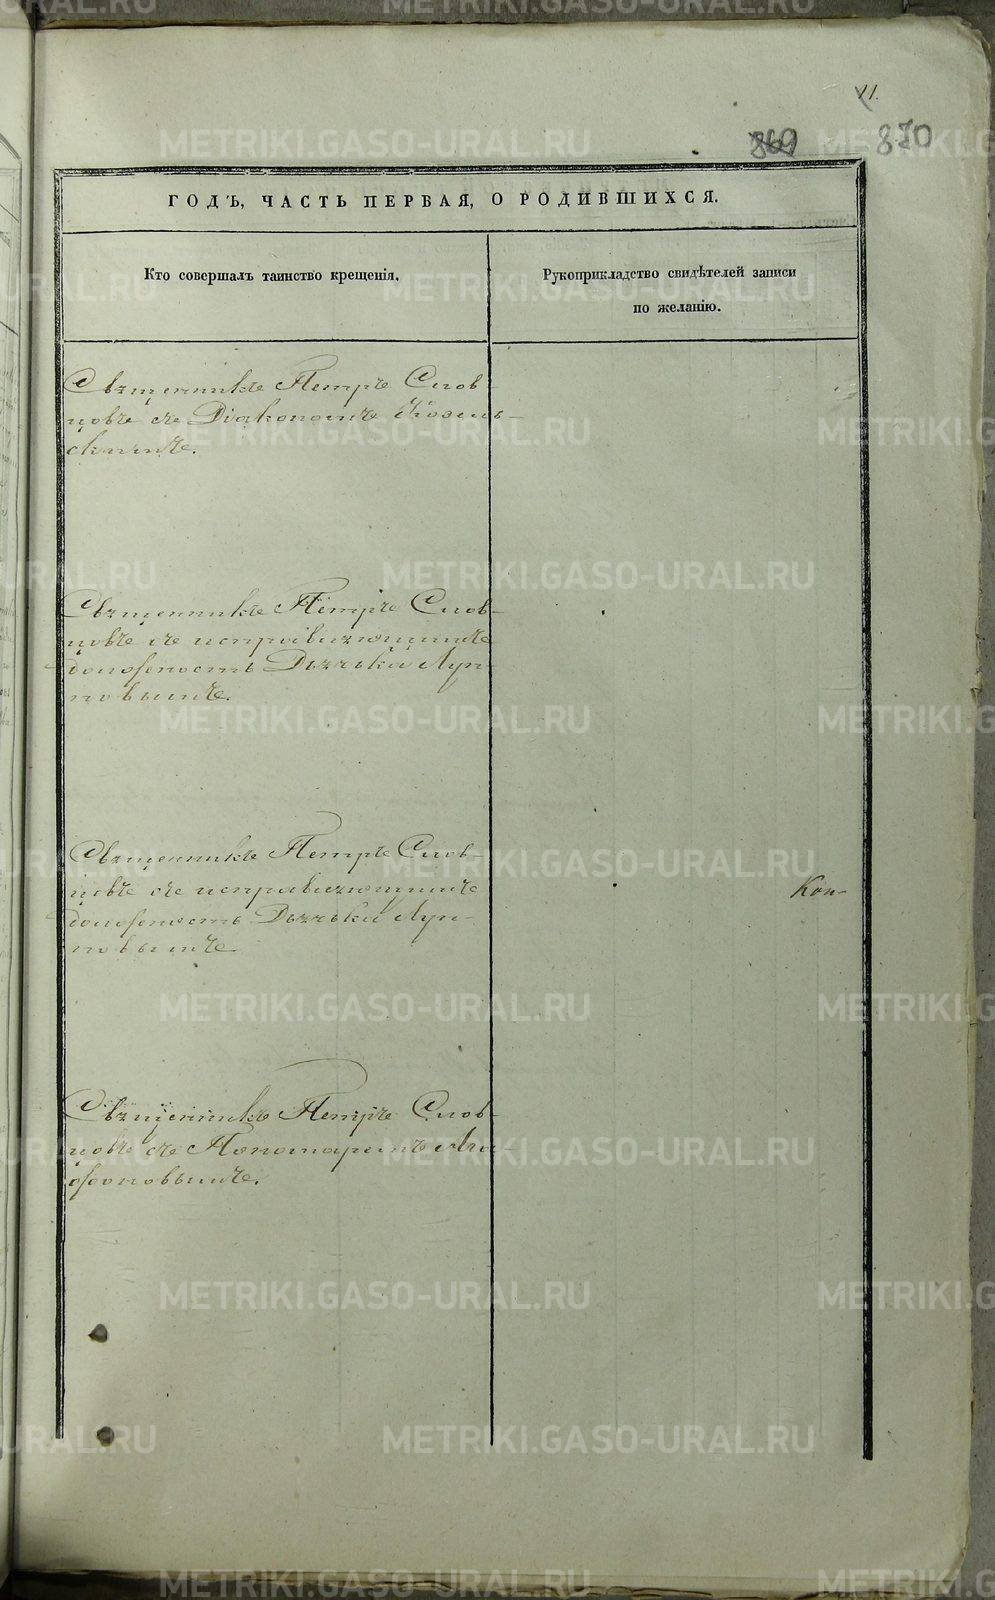 11.
869 870
ГОДЪ, ЧАСТЬ ПЕРВАЯ, О РОДИВШИХСЯ.
Кто совершалъ таинство крещенія.
Рукоприкладство свидѣтелей записи
по желанію.
Священникъ Петръ Слов-
цовъ съ Діакономъ
скимъ.
Священникъ Петръ Слов-
цовъ съ исправляющимъ
должность Дьячька Луп-
повымъ.
Священникъ Петръ Слов-
цовъ съ исправляющимъ
должность Дьячька Луп-
повымъ.
Кон-
Священникъ Петръ Слов-
цовъ съ Пономаремъ Ага-
фоновымъ.
METRIKI.GASO-URAL.RU